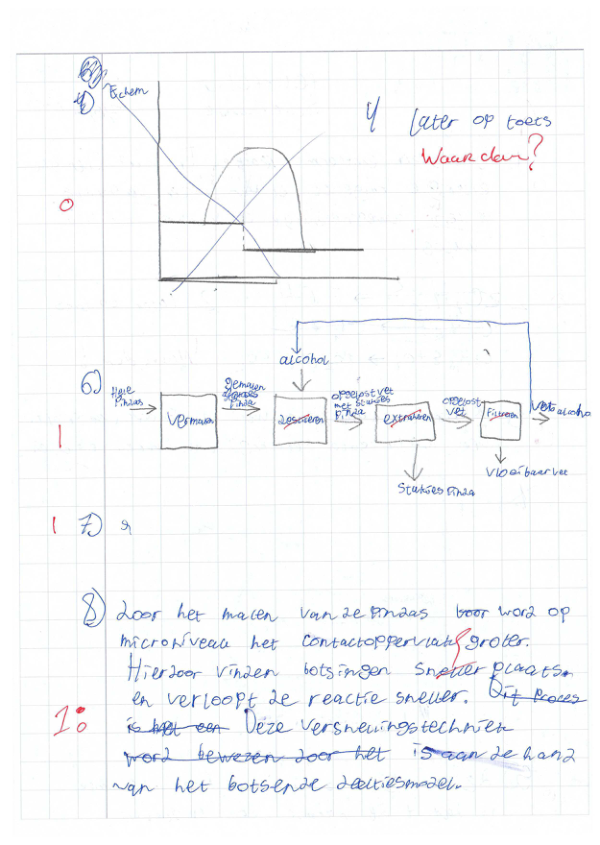 4)
Echem
4 Later op toets
Waar dan?
0
alcohol
6)
Hele pindas
gemalen pinda
opgelost vet met stukjes pinda
opgelost vet
vet alcohol
Vermalen
extraheren
filtreren
1
vloeibaar vet
stukjes pinda
1 7)
8) Door het malen van de pindas word op
microniveau het contactoppervlak groter.
Hierdoor vinden botsingen sneller plaats
en verloopt de reactie sneller. Dit proces
1 is het een Deze versnellingstechniek
word bewezen door het is aan de hand
van het botsende deeltjesmodel.